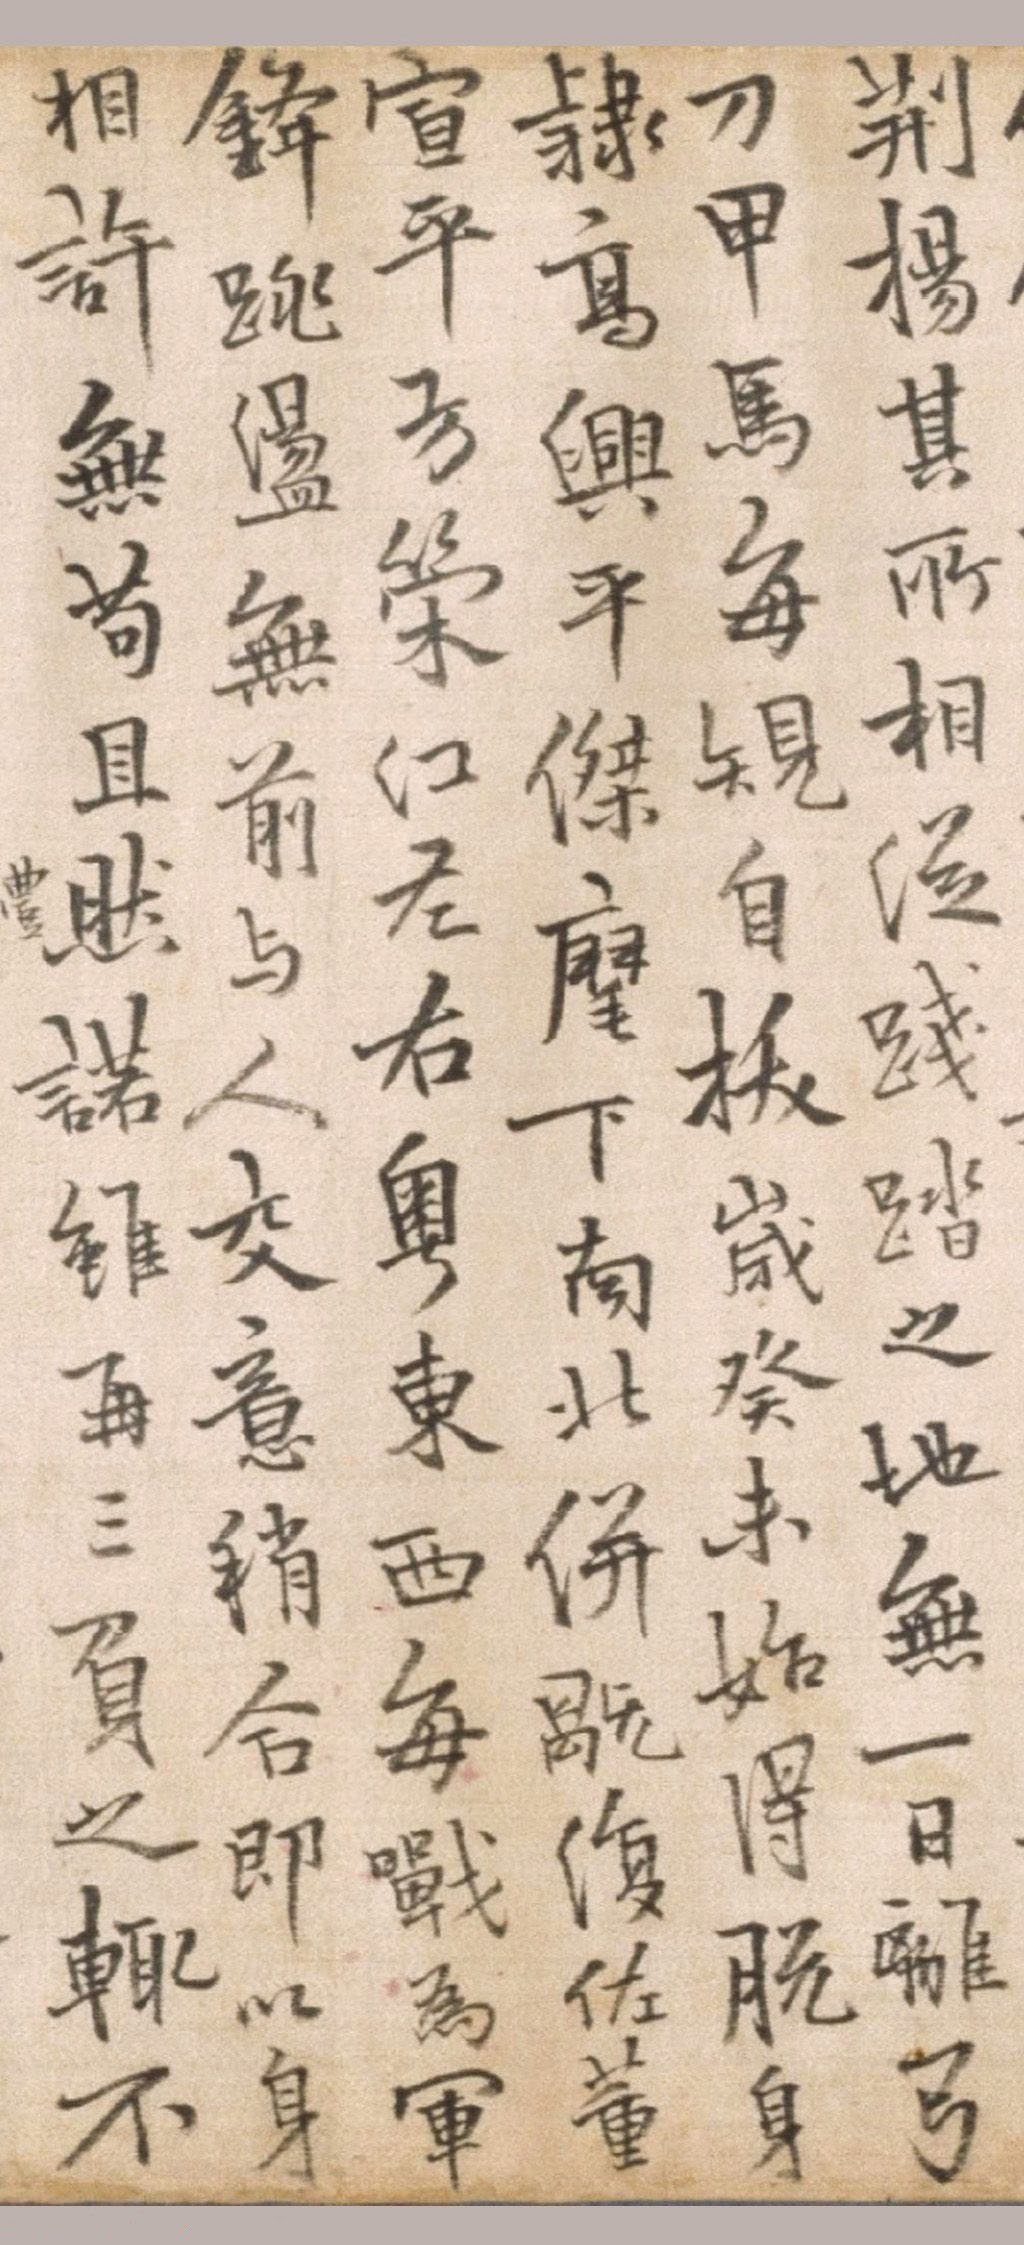 荆楊其所相從踐踏之地無一日離弓
刀甲馬每䂓自拔歲癸未始得脫身
隷髙興平傑麾下南北併既復佐董
宣平秀榮江左右粤東西每戰為軍
鋒跳盪無前与人交意稍合即以身
相許無苟且然諾雖再三負之輙不
豐